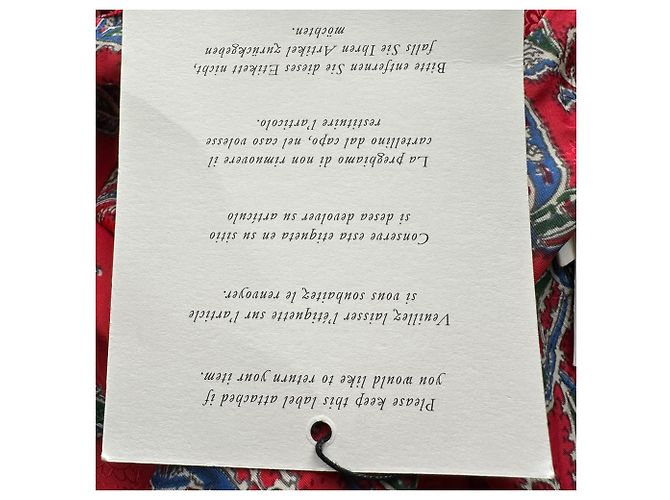 Please keep this label attached if
you would like to return your item.
Veuillez laisser l'étiquette sur l'article
si vous souhaitez le renvoyer.
Conserve esta etiqueta en su sitio
si desea devolver su artículo
La preghiamo di non rimuovere il
cartellino dal capo, nel caso volesse
restituire l'articolo.
Bitte entfernen Sie dieses Etikett nicht,
falls Sie Ihren Artikel zurückgeben
möchten.